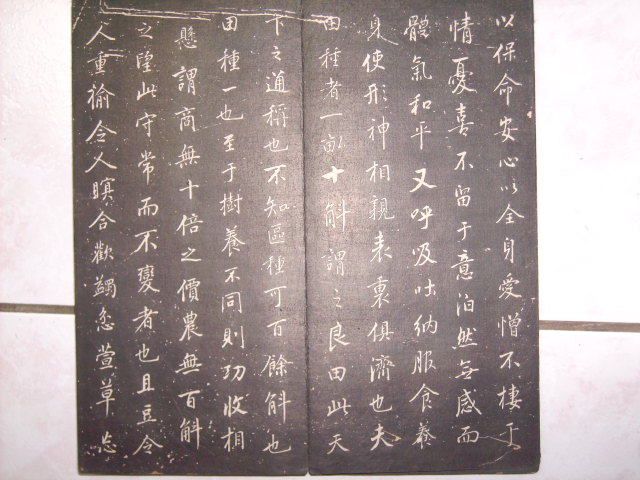 以保命安心以全身愛憎不棲于
情憂喜不留于意泊然無感而
體氣和平又呼吸吐納服食養
身使形神相親表裏俱濟也夫
田種者一畝十斛謂之良田此天
下之通稱也不知區種可百餘斛也
田種一也至于樹養不同則功收相
懸謂商無十倍之價農無百斛
之望此守常而不變者也且豆令
人重榆令人瞑合歡蠲忿萱草忘